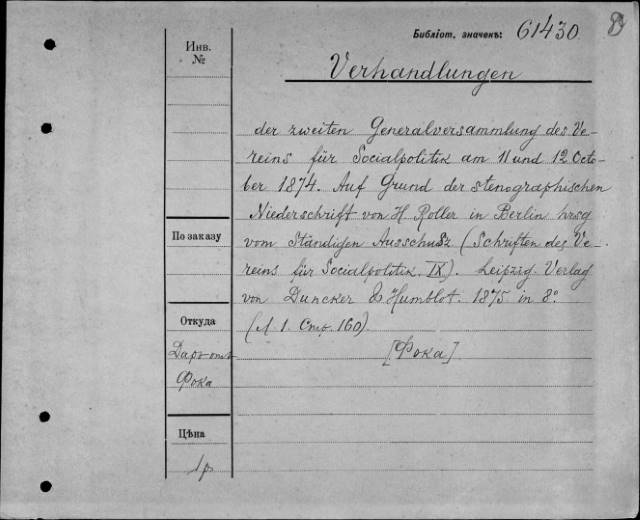 Библіот. значекъ: 61430
Инв.
№
Verhandlungen
der zweiten Generalversammlung des Ve-
reins für Socialpolitik am 11 und 12 Octo-
ber 1874. Auf Grund der stenographischen
Niederschrift von H Roller in Berlin hrsg
vom Ständigen Ausschusz (Schriften des Ve-
reins für Socialpolitik IX). Leipzig. Verlag
von Duncker & Humblot. 1875 in 8°
(Л. 1. Стр. 160).
[Фока]
По заказу
Откуда
Даръ отъ
Фока
Цѣна
1 р